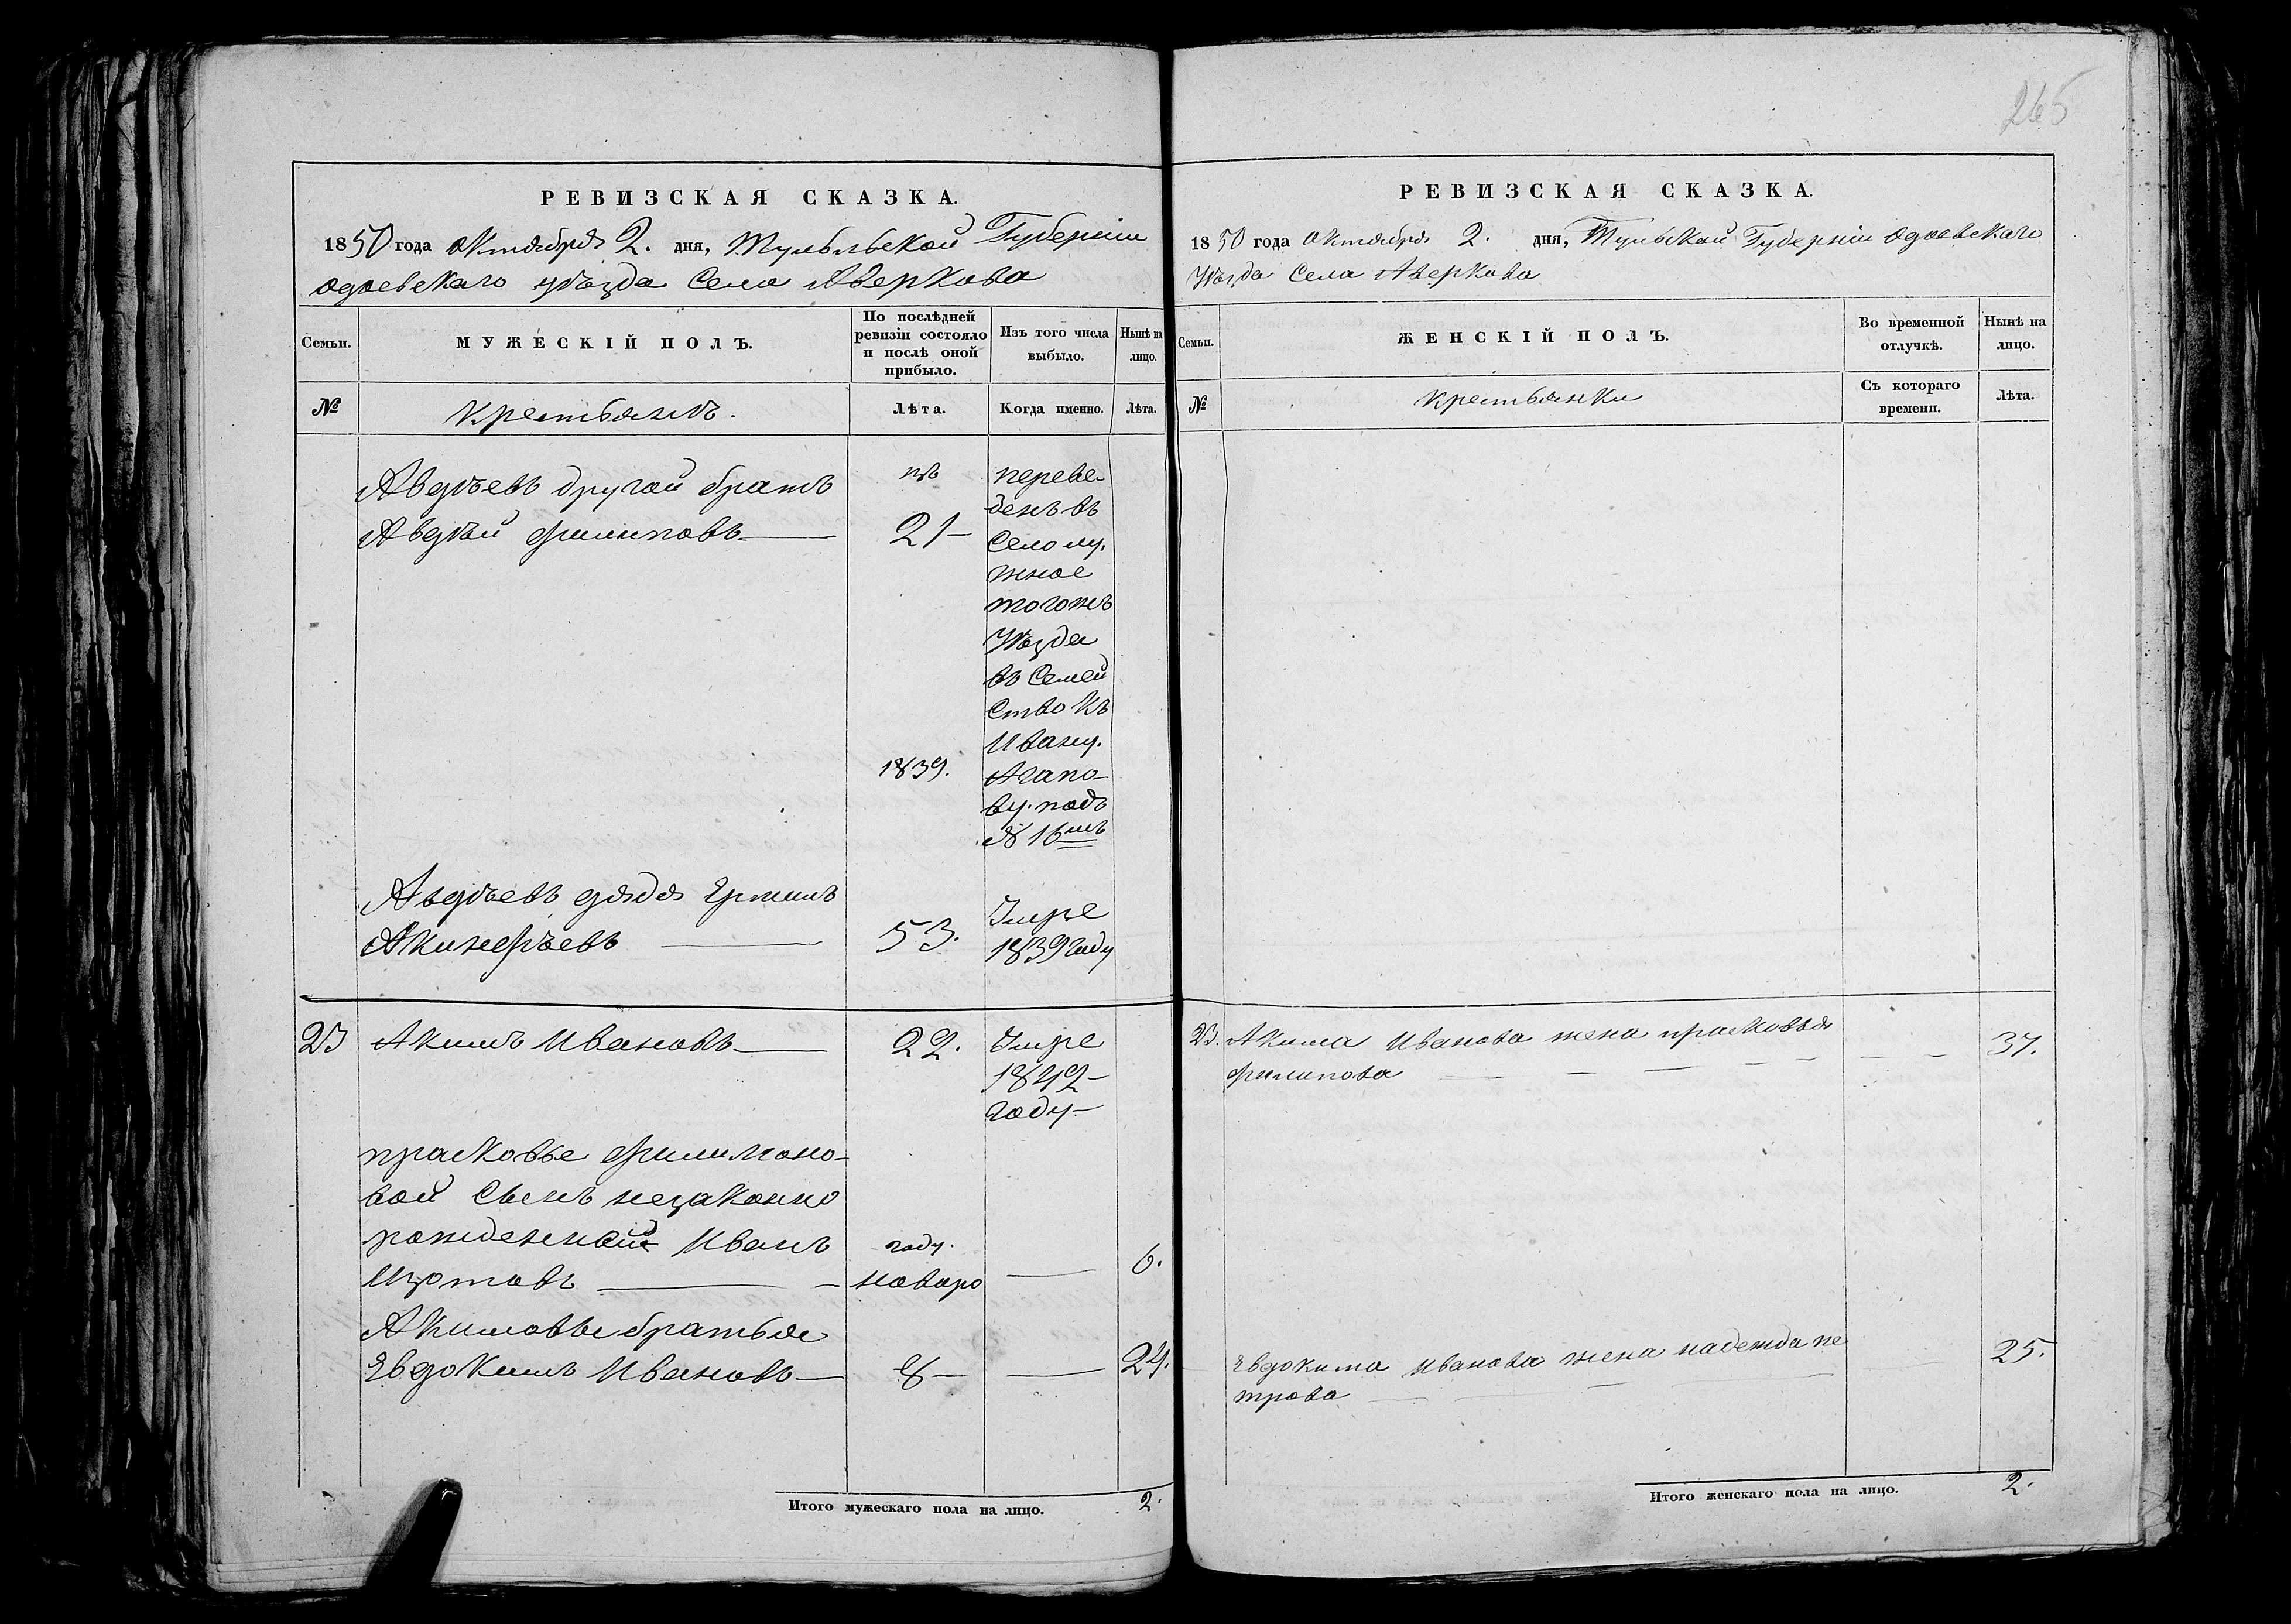 265
РЕВИЗСКАЯ СКАЗКА.
1850 года октября 2. дня, Тульльской Губернiи
одоевскаго уѣзда Села Аверкова
Семьи.
МУЖЕСКІЙ ПОЛЪ.
По послѣдней
ревизіи состояло
и послѣ оной
прибыло.
Изъ того числа
выбыло.
Нынѣ на
лицо.
№
крестьянъ.
Лѣта.
Когда именно.
Лѣта.
Авдѣевъ другой братъ
Авдѣй филиповъ
21
переве
денъ въ
Село лу.
жное
тогожъ
Уѣзда
въ Семей
Ство къ
Ивану.
Агапо-
ву. подъ
№ 16мъ
1839.
Авдѣевъ дядя Ермилъ
Акинфѣевъ
53.
Умре
1839 году
23
Акимъ Ивановъ
22.
Умре
1842
году
прасковье филимоно-
вой Сынъ незаконно
рожденной Иванъ
Изотовъ
году.
новоро
6.
Акимовы братья
Евдокимъ Ивановъ
8
24.
Итого мужескаго пола на лицо.
2.
РЕВИЗСКАЯ СКАЗКА.
1850 года октября 2. дня, Тульской Губернiи одоевскаго
Уѣзда Села Аверкова
Семьи.
ЖЕНСКІЙ ПОЛЪ.
Во временной
отлучкѣ.
Нынѣ на
лицо.
№
крестьянки
Съ котораго
времени.
Лѣта.
23. Акима Иванова жена прасковья
филипова
37.
Евдокима Иванова жена надежда пе
трова
25.
Итого женскаго пола на лицо.
2.